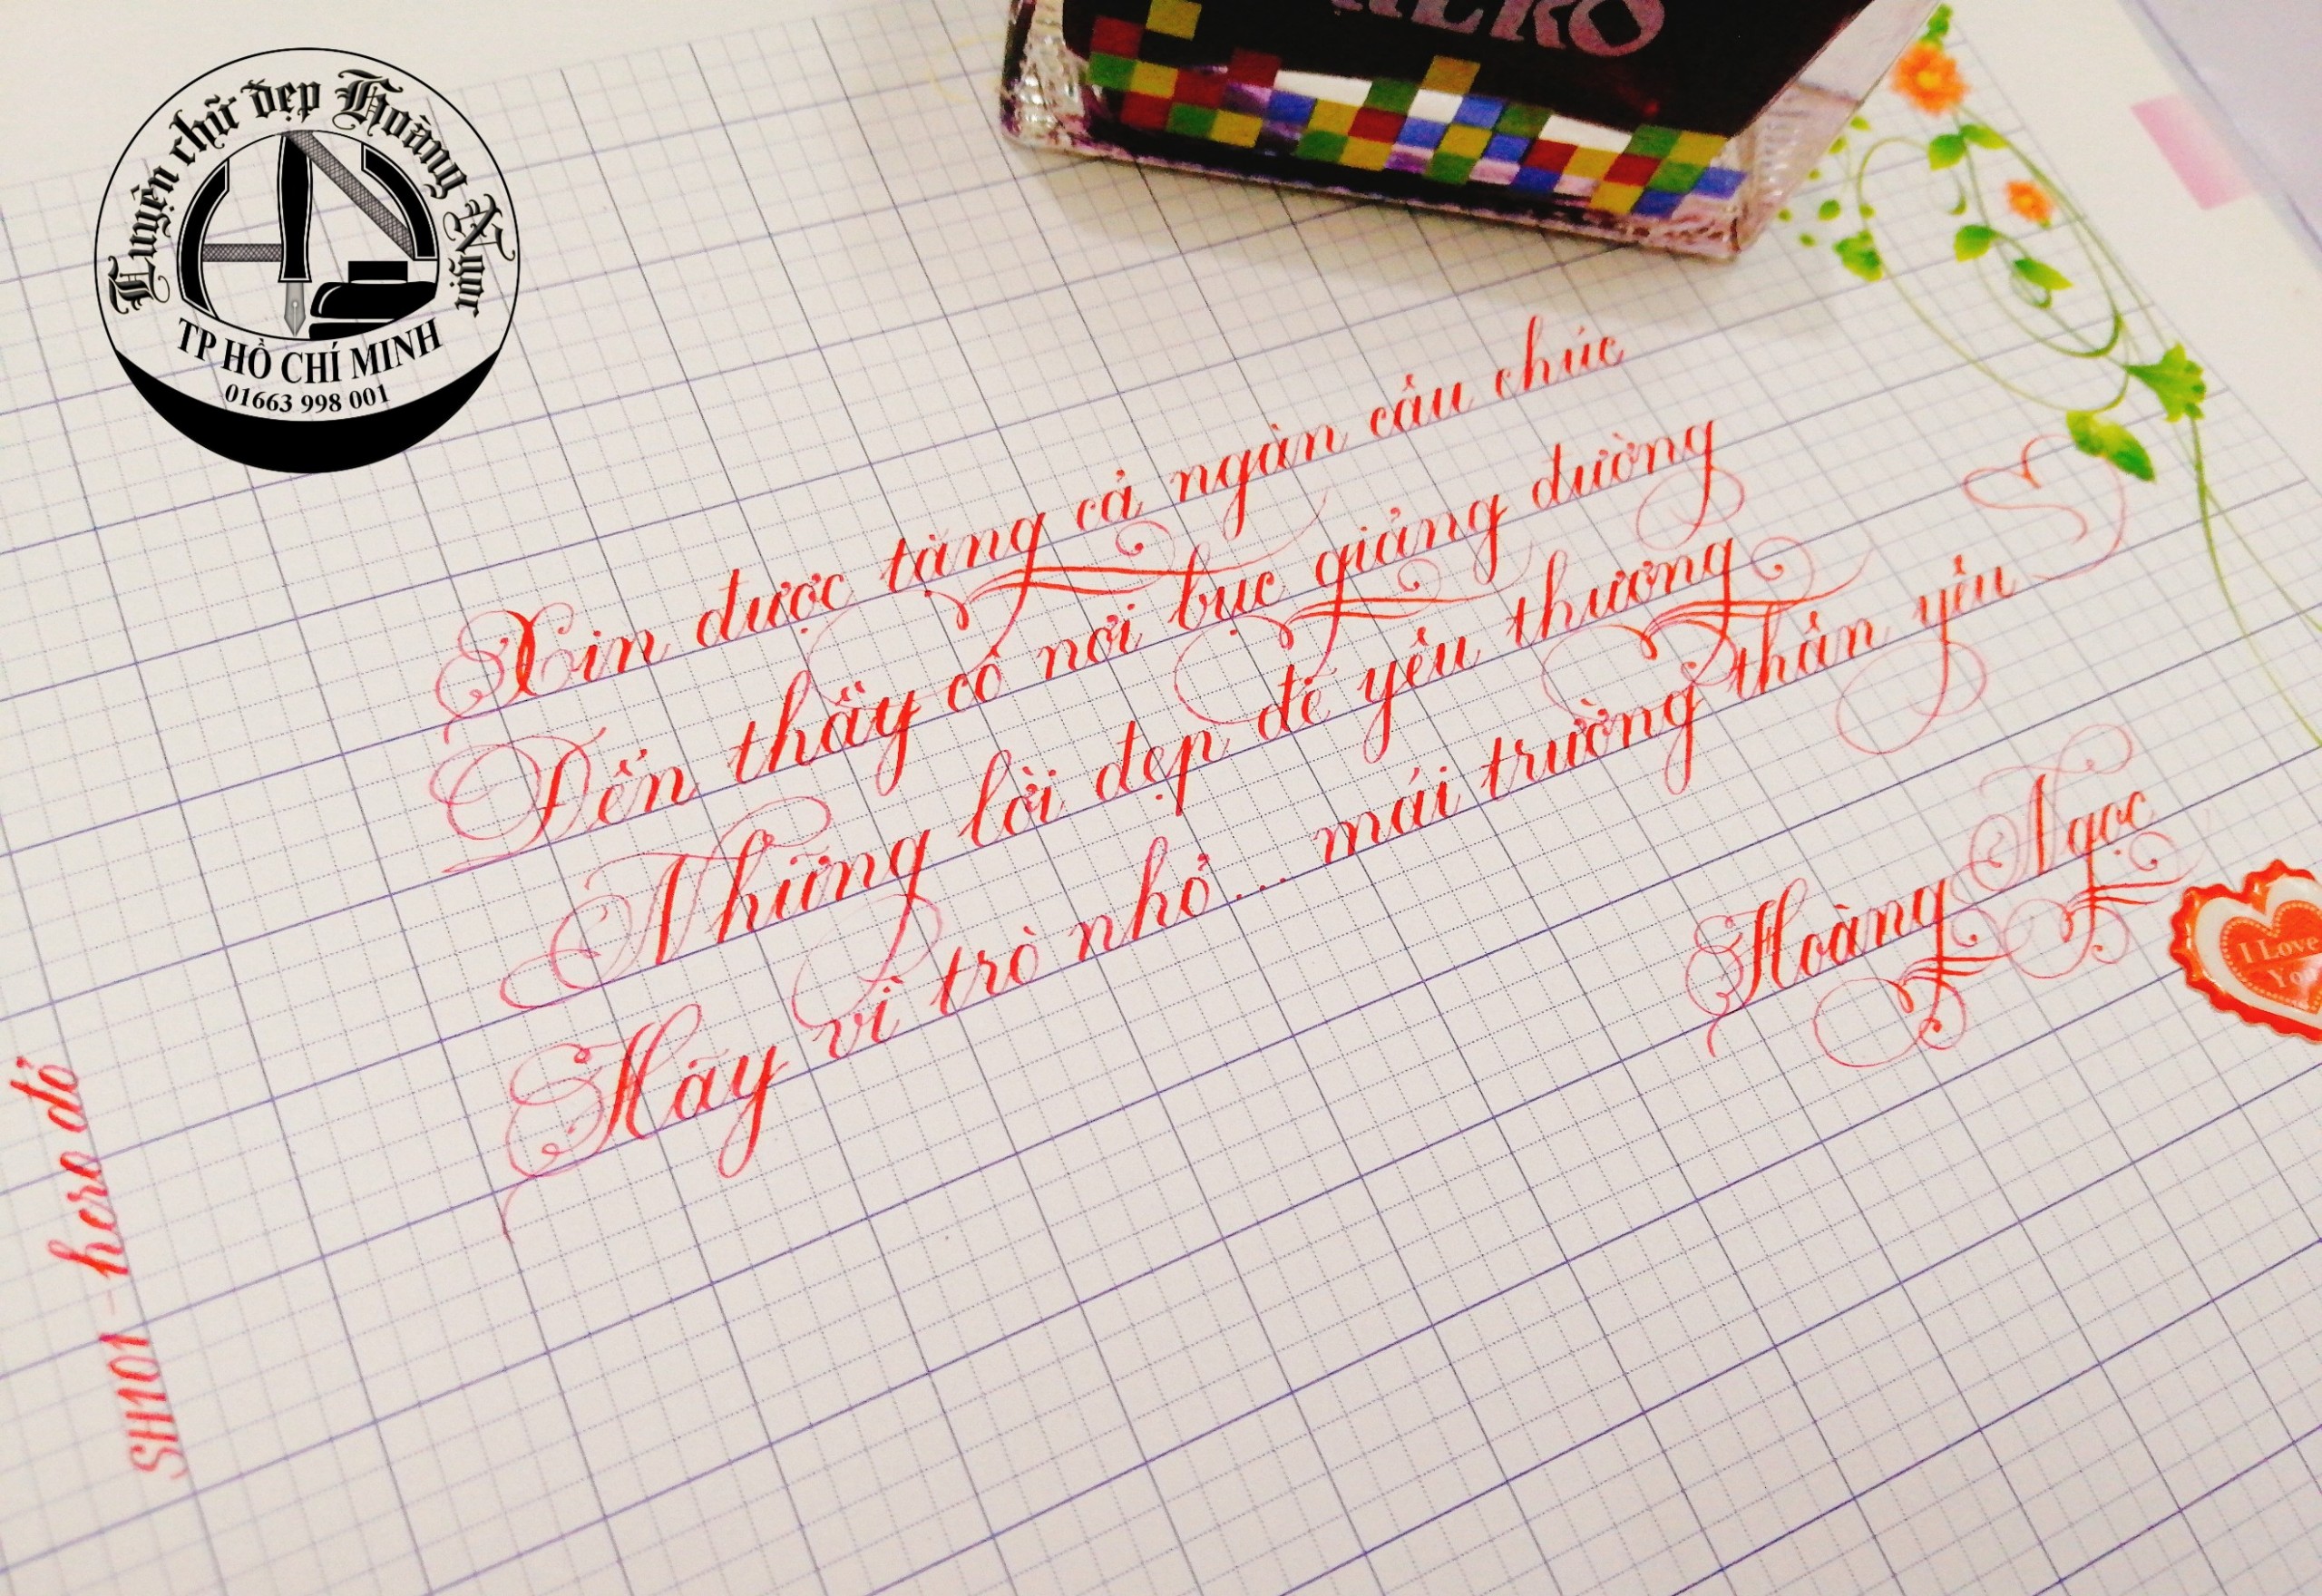 Luyện chữ đẹp Hoàng Ngọc
TP HỒ CHÍ MINH
01663 998 001
HERO
Xin được tặng cả ngàn câu chúc
Đến thầy cô nơi bục giảng đường
Những lời đẹp đẽ yêu thương
Hãy vì trò nhỏ... mái trường thân yêu
Hoàng Ngọc
I Love
You
SH101 - hero đỏ